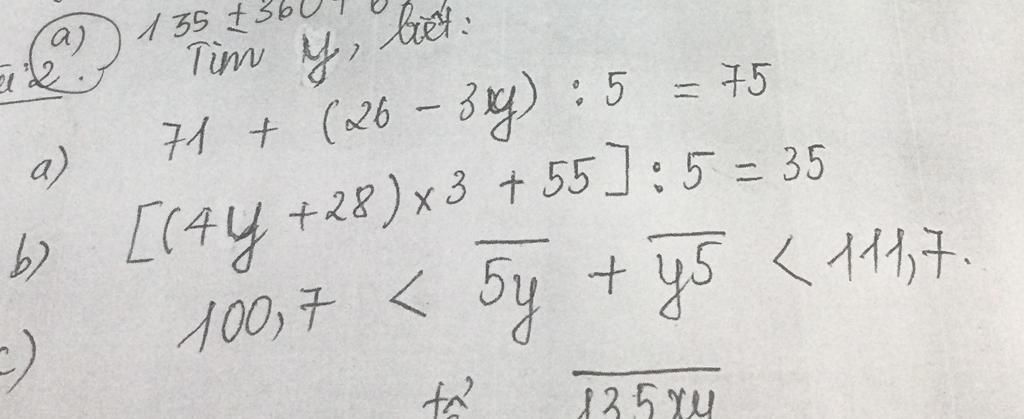 a) 135 + 360 +
Bài 2. Tìm y, biết:
a) 71 + (26 - 3y) : 5 = 75
b) [(4y + 28) x 3 + 55] : 5 = 35
c) 100,7 < \overline{5y} + \overline{y5} < 111,7.
tố \overline{135xy}